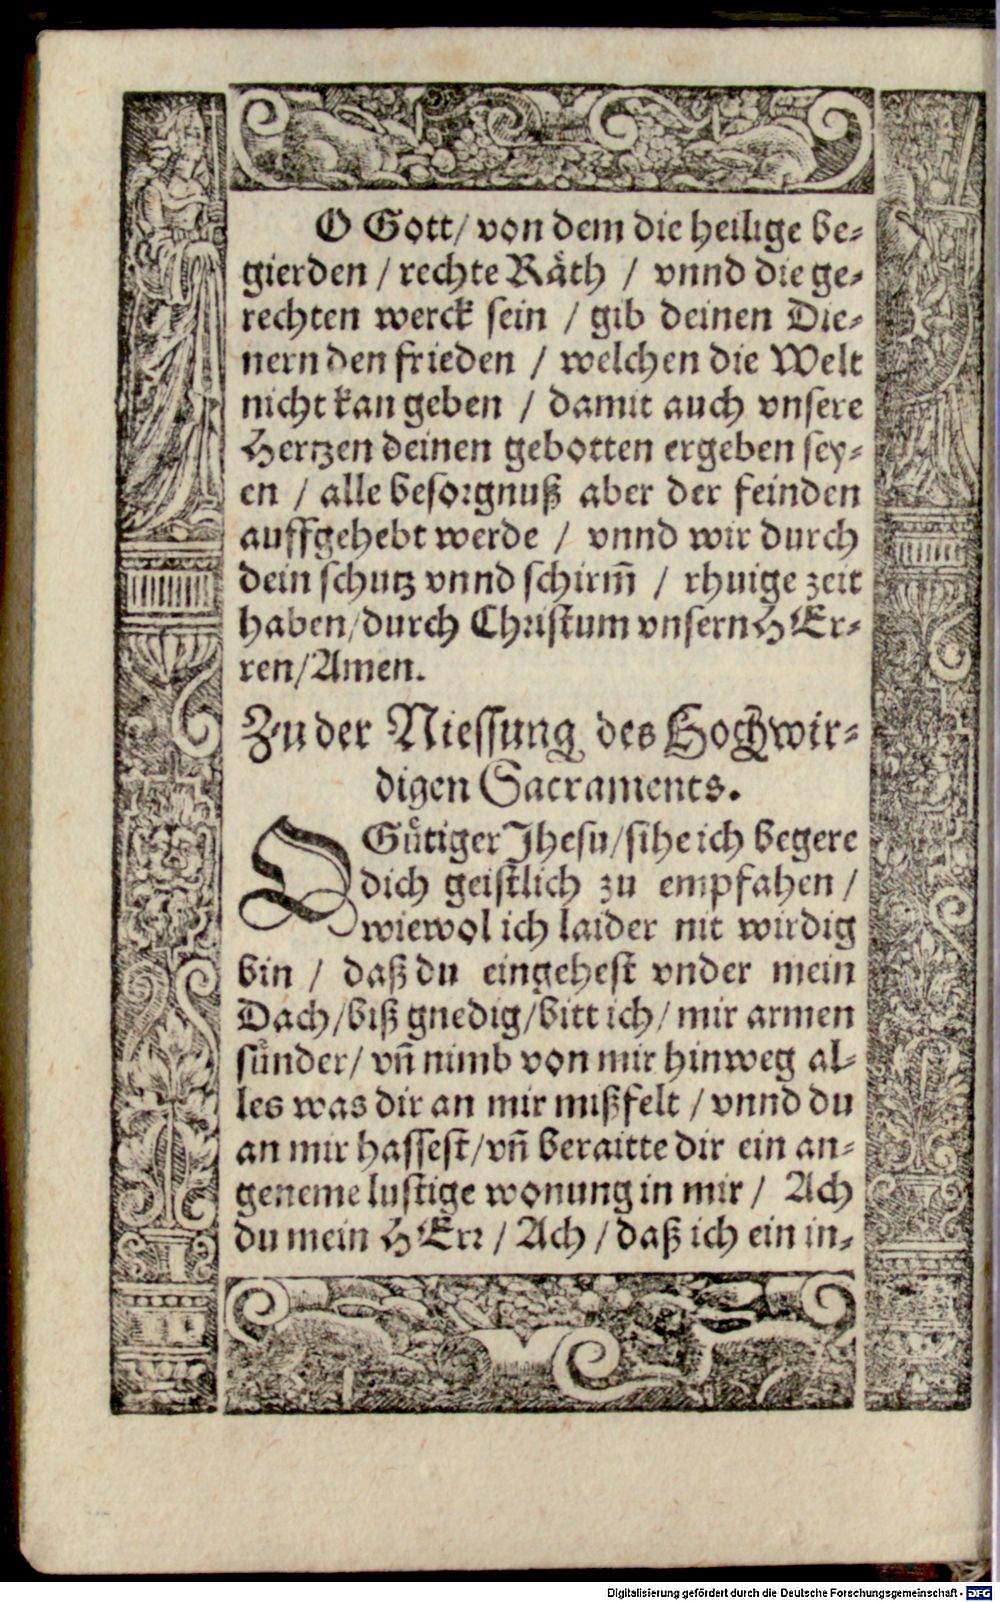 O Gott/ von dem die heilige be⸗
gierden / rechte Räth / vnnd die ge⸗
rechten werck sein / gib deinen Die⸗
nern den frieden / welchen die Welt
nicht kan geben / damit auch vnsere
Hertzen deinen gebotten ergeben sey⸗
en / alle besorgnuß aber der feinden
auffgehebt werde / vnnd wir durch
dein schutz vnnd schirm̄ / rhuige zeit
haben/durch Christum vnsern HEr⸗
ren/Amen.
Zu der Niessung des Hochwir⸗
digen Sacraments.
O Gütiger Jhesu/sihe ich begere
dich geistlich zu empfahen /
wiewol ich laider nit wirdig
bin / daß du eingehest vnder mein
Dach/biß gnedig/bitt ich/ mir armen
sünder/ vn̄ nimb von mir hinweg al⸗
les was dir an mir mißfelt / vnnd du
an mir hassest/vn̄ beraitte dir ein an⸗
geneme lustige wonung in mir / Ach
du mein HErr / Ach / daß ich ein in⸗
Digitalisierung gefördert durch die Deutsche Forschungsgemeinschaft - DFG